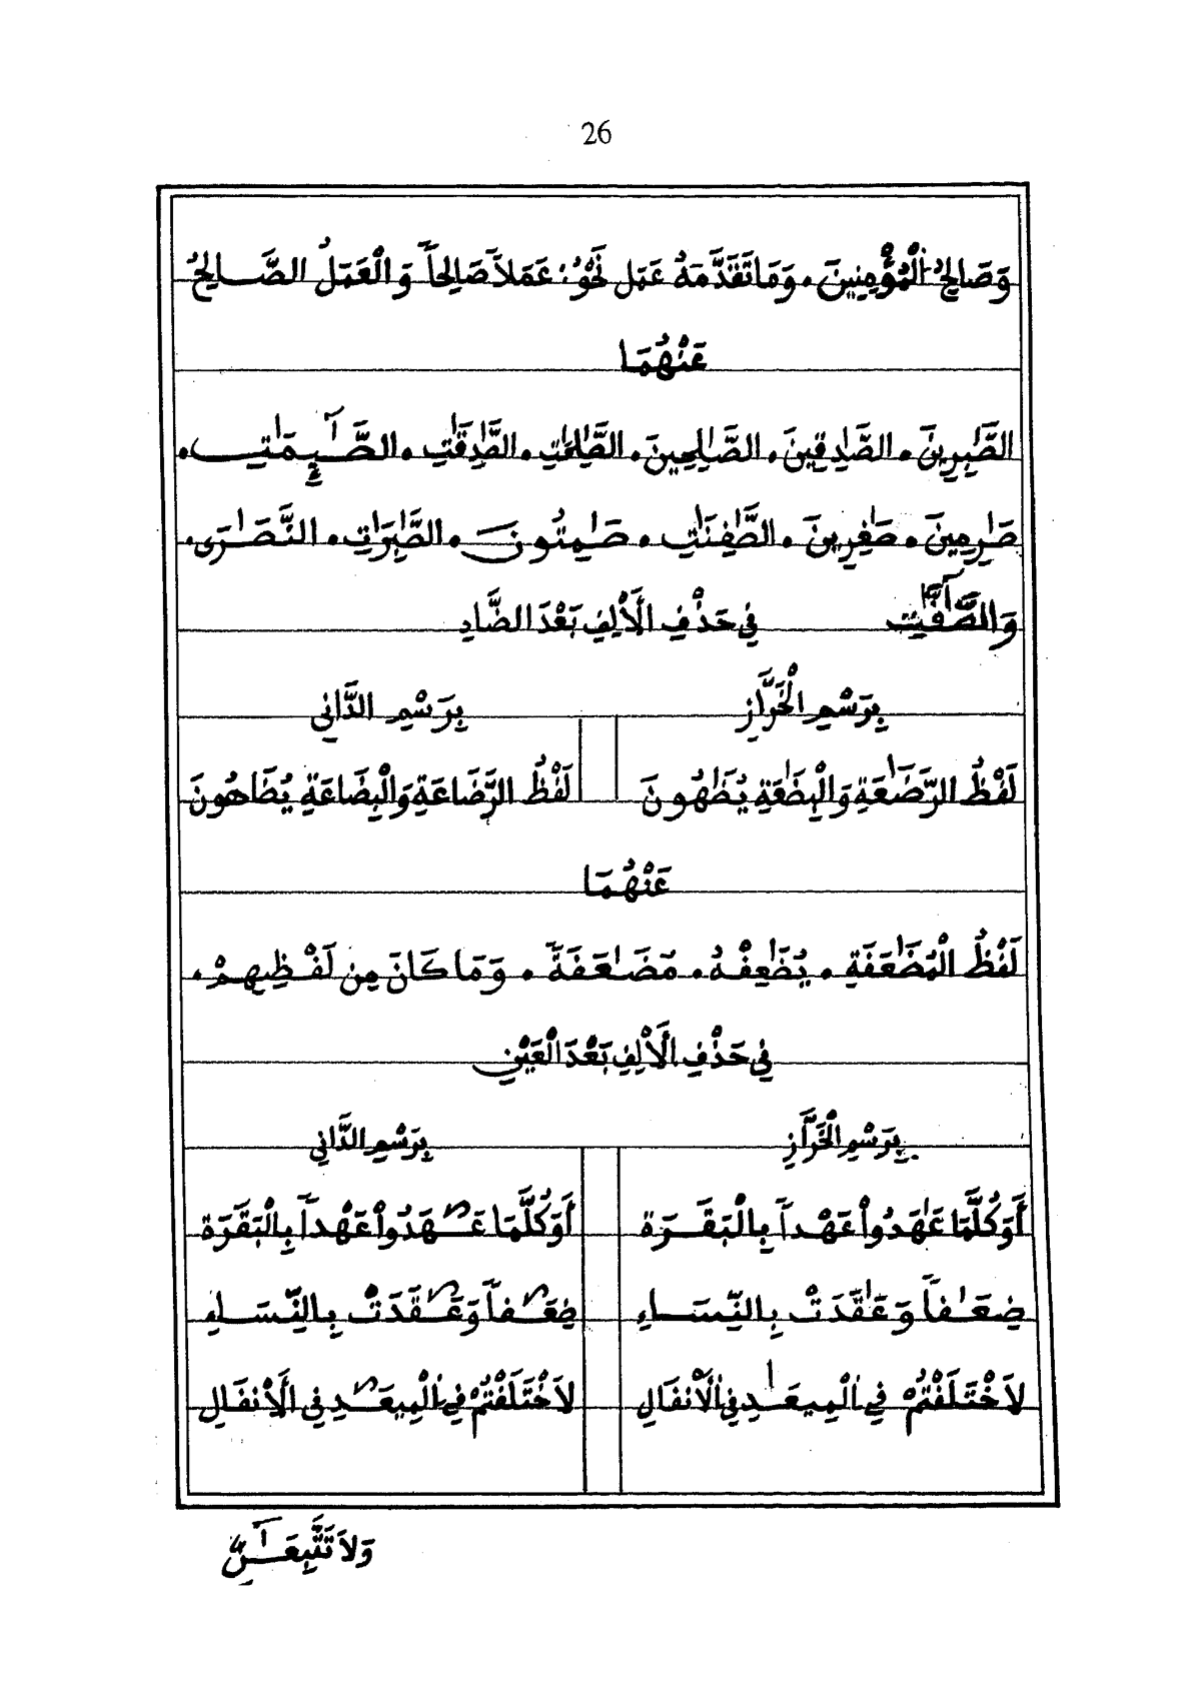 26
وَصَالِحُ الْمُؤْمِنِينَ . وَمَا تَقَدَّمَهُ عَمَل نَحْوُ : عَمَلاً صَالِحاً وَالْعَمَلُ الصَّالِحُ
عَنْهُمَا
الصَّٰبِرِينَ . الصَّٰدِقِينَ . الصَّٰلِحِينَ . الصَّٰلِحَٰتِ . الصَّٰدِقَٰتِ . الصَّٰٓئِمَٰتِ .
صَٰرِمِينَ . صَٰغِرِينَ . الصَّٰفِنَٰتِ . صَٰمِتُونَ . الصَّٰبِرَٰتِ . النَّصَٰرَى .
وَالصَّٰٓفَّٰتِ فِي حَذْفِ الْأَلِفِ بَعْدَ الضَّادِ
بِرَسْمِ الْخَرَّازِ بِرَسْمِ الدَّانِي
لَفْظُ الرَّضَٰعَةِ وَالْبِضَٰعَةِ يُضَٰهُونَ لَفْظُ الرَّضَاعَةِ وَالْبِضَاعَةِ يُضَاهُونَ
عَنْهُمَا
لَفْظُ الْمُضَٰعَفَةِ . يُضَٰعِفْهُ . مُّضَٰعَفَةً . وَمَا كَانَ مِن لَفْظِهِمْ .
فِي حَذْفِ الْأَلِفِ بَعْدَ الْعَيْنِ
بِرَسْمِ الْخَرَّازِ بِرَسْمِ الدَّانِي
أَوَكُلَّمَا عَٰهَدُواْ عَهْداً بِالْبَقَرَة أَوَكُلَّمَا عَٰهَدُواْ عَهْداً بِالْبَقَرَة
ضِعَٰفاً وَعَٰقَدَتْ بِالنِّسَاءِ ضِعَٰفاً وَعَٰقَدَتْ بِالنِّسَاءِ
لَاخْتَلَفْتُمْ فِي الْمِيعَٰدِ فِي الْأَنْفَالِ لَاخْتَلَفْتُمْ فِي الْمِيعَٰدِ فِي الْأَنْفَالِ
وَلَا تَتَّبِعَٰٓنِّ